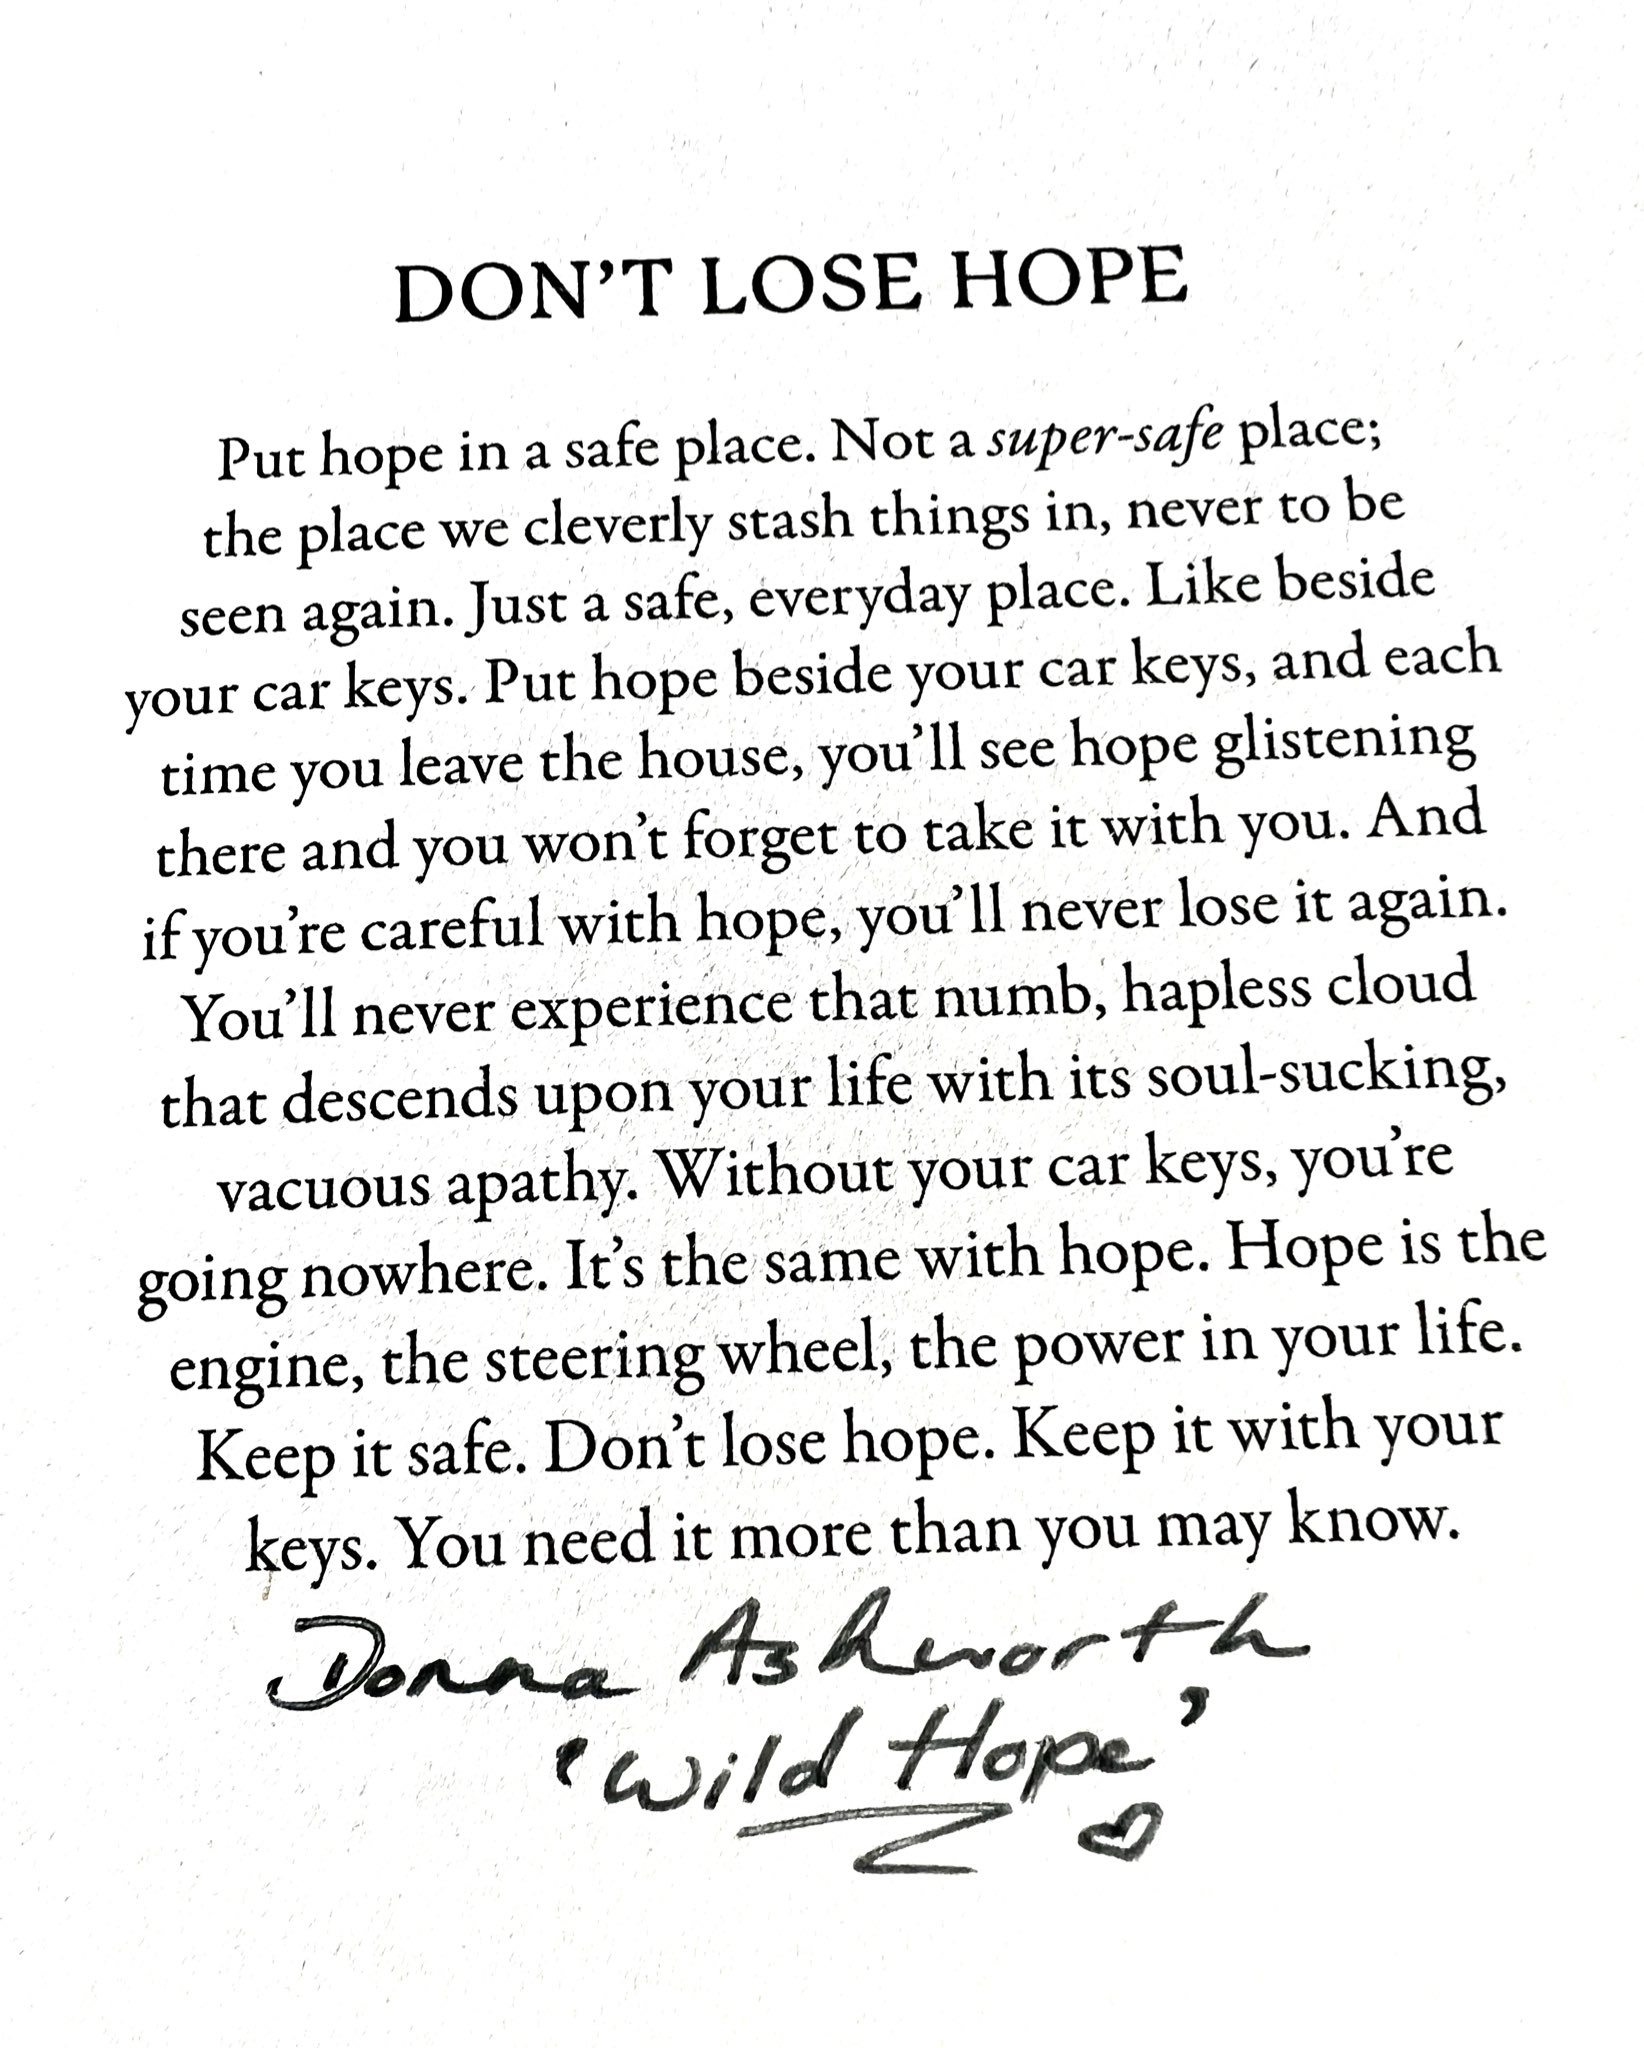 DON'T LOSE HOPE
Put hope in a safe place. Not a super-safe place;
the place we cleverly stash things in, never to be
seen again. Just a safe, everyday place. Like beside
your car keys. Put hope beside your car keys, and each
time you leave the house, you'll see hope glistening
there and you won't forget to take it with you. And
if you're careful with hope, you'll never lose it again.
You'll never experience that numb, hapless cloud
that descends upon your life with its soul-sucking,
vacuous apathy. Without your car keys, you're
going nowhere. It's the same with hope. Hope is the
engine, the steering wheel, the power in your life.
Keep it safe. Don't lose hope. Keep it with your
keys. You need it more than you may know.
Donna Ashworth
'Wild Hope'